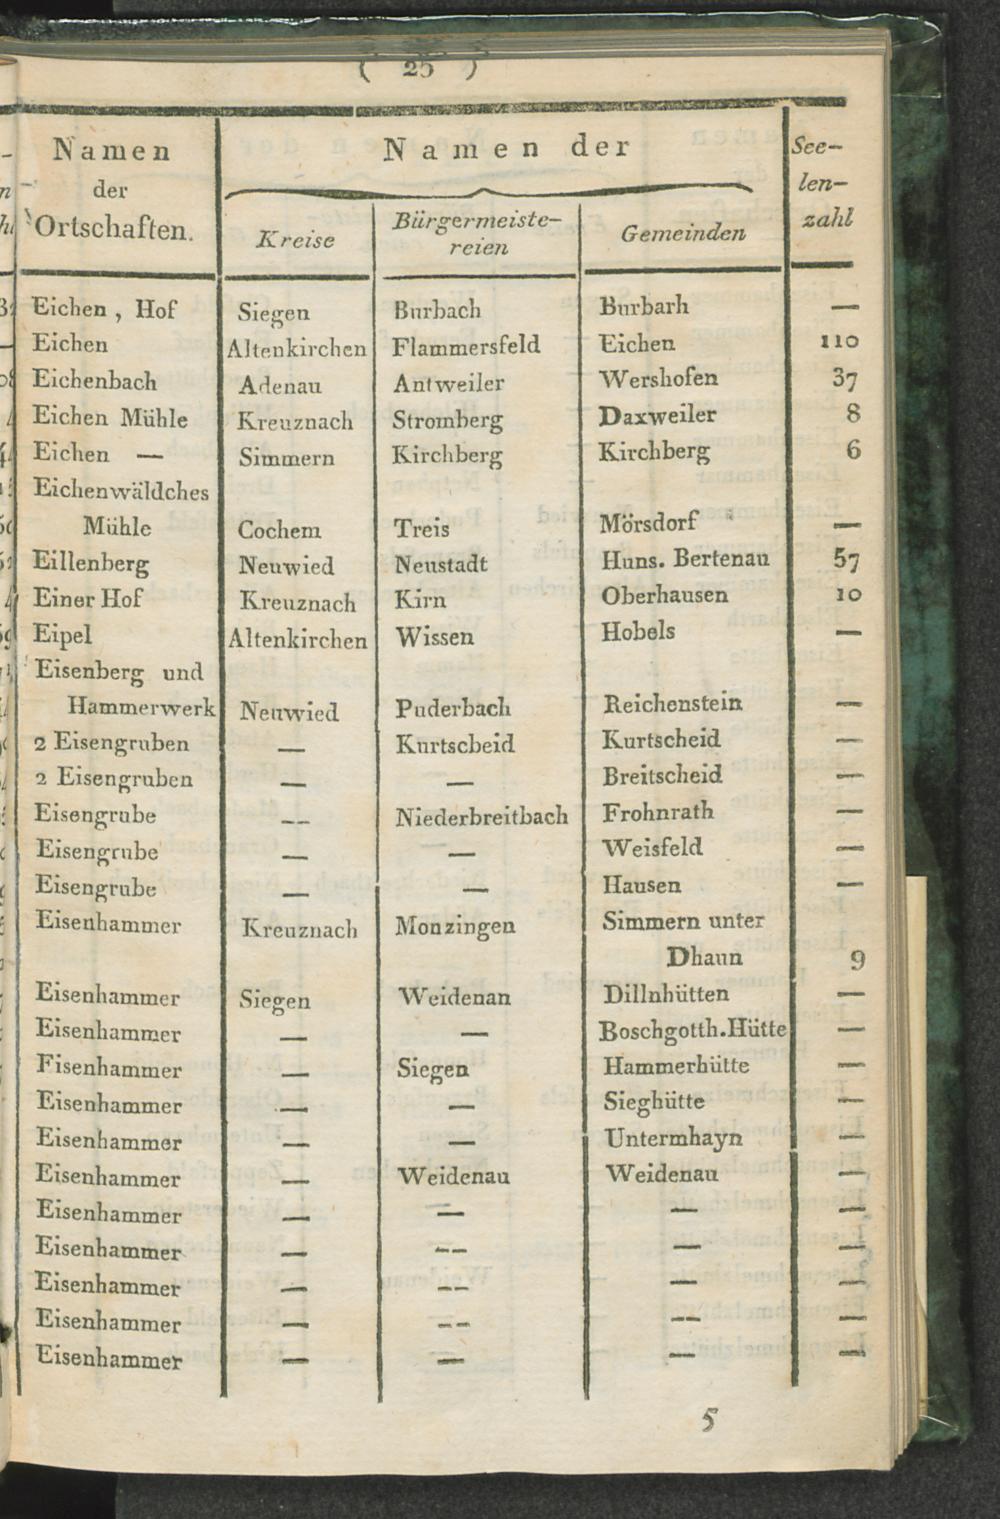 ( 25 )
Namen
der
Ortschaften.
Namen der
Kreise
Bürgermeiste-
reien
Gemeinden
See-
len-
zahl
Eichen , Hof Siegen Burbach Burbarh —
Eichen Altenkirchen Flammersfeld Eichen 110
Eichenbach Adenau Antweiler Wershofen 37
Eichen Mühle Kreuznach Stromberg Daxweiler 8
Eichen — Simmern Kirchberg Kirchberg 6
Eichenwäldches
Mühle Cochem Treis Mörsdorf —
Eillenberg Neuwied Neustadt Huns. Bertenau 57
Einer Hof Kreuznach Kirn Oberhausen 10
Eipel Altenkirchen Wissen Hobels —
Eisenberg und
Hammerwerk Neuwied Puderbach Reichenstein —
2 Eisengruben — Kurtscheid Kurtscheid —
2 Eisengruben — — Breitscheid —
Eisengrube — Niederbreitbach Frohnrath —
Eisengrube — — Weisfeld —
Eisengrube — — Hausen —
Eisenhammer Kreuznach Monzingen Simmern unter
Dhaun 9
Eisenhammer Siegen Weidenan Dillnhütten —
Eisenhammer — — Boschgotth.Hütte —
Fisenhammer — Siegen Hammerhütte —
Eisenhammer — — Sieghütte —
Eisenhammer — — Untermhayn —
Eisenhammer — Weidenau Weidenau —
Eisenhammer — — — —
Eisenhammer — — — —
Eisenhammer — — — —
Eisenhammer — — — —
Eisenhammer — — — —
5